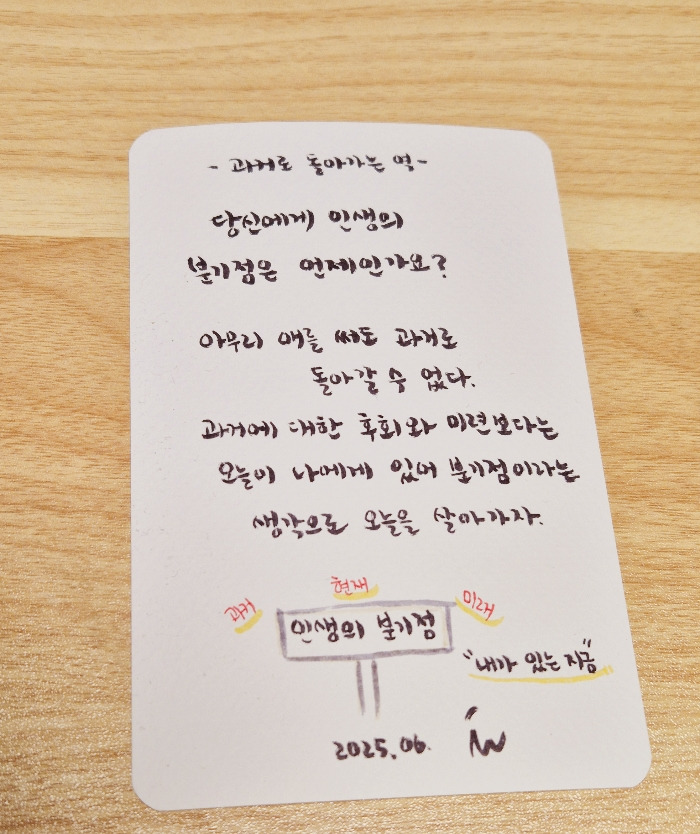 - 과거로 돌아가는 역 -
당신에게 인생의
분기점은 언제인가요?
아무리 애를 써도 과거로
돌아갈 수 없다.
과거에 대한 후회와 미련보다는
오늘이 나에게 있어 분기점이라는
생각으로 오늘을 살아가자.
과거 현재 미래
인생의 분기점
"내가 있는 지금"
2025.06.